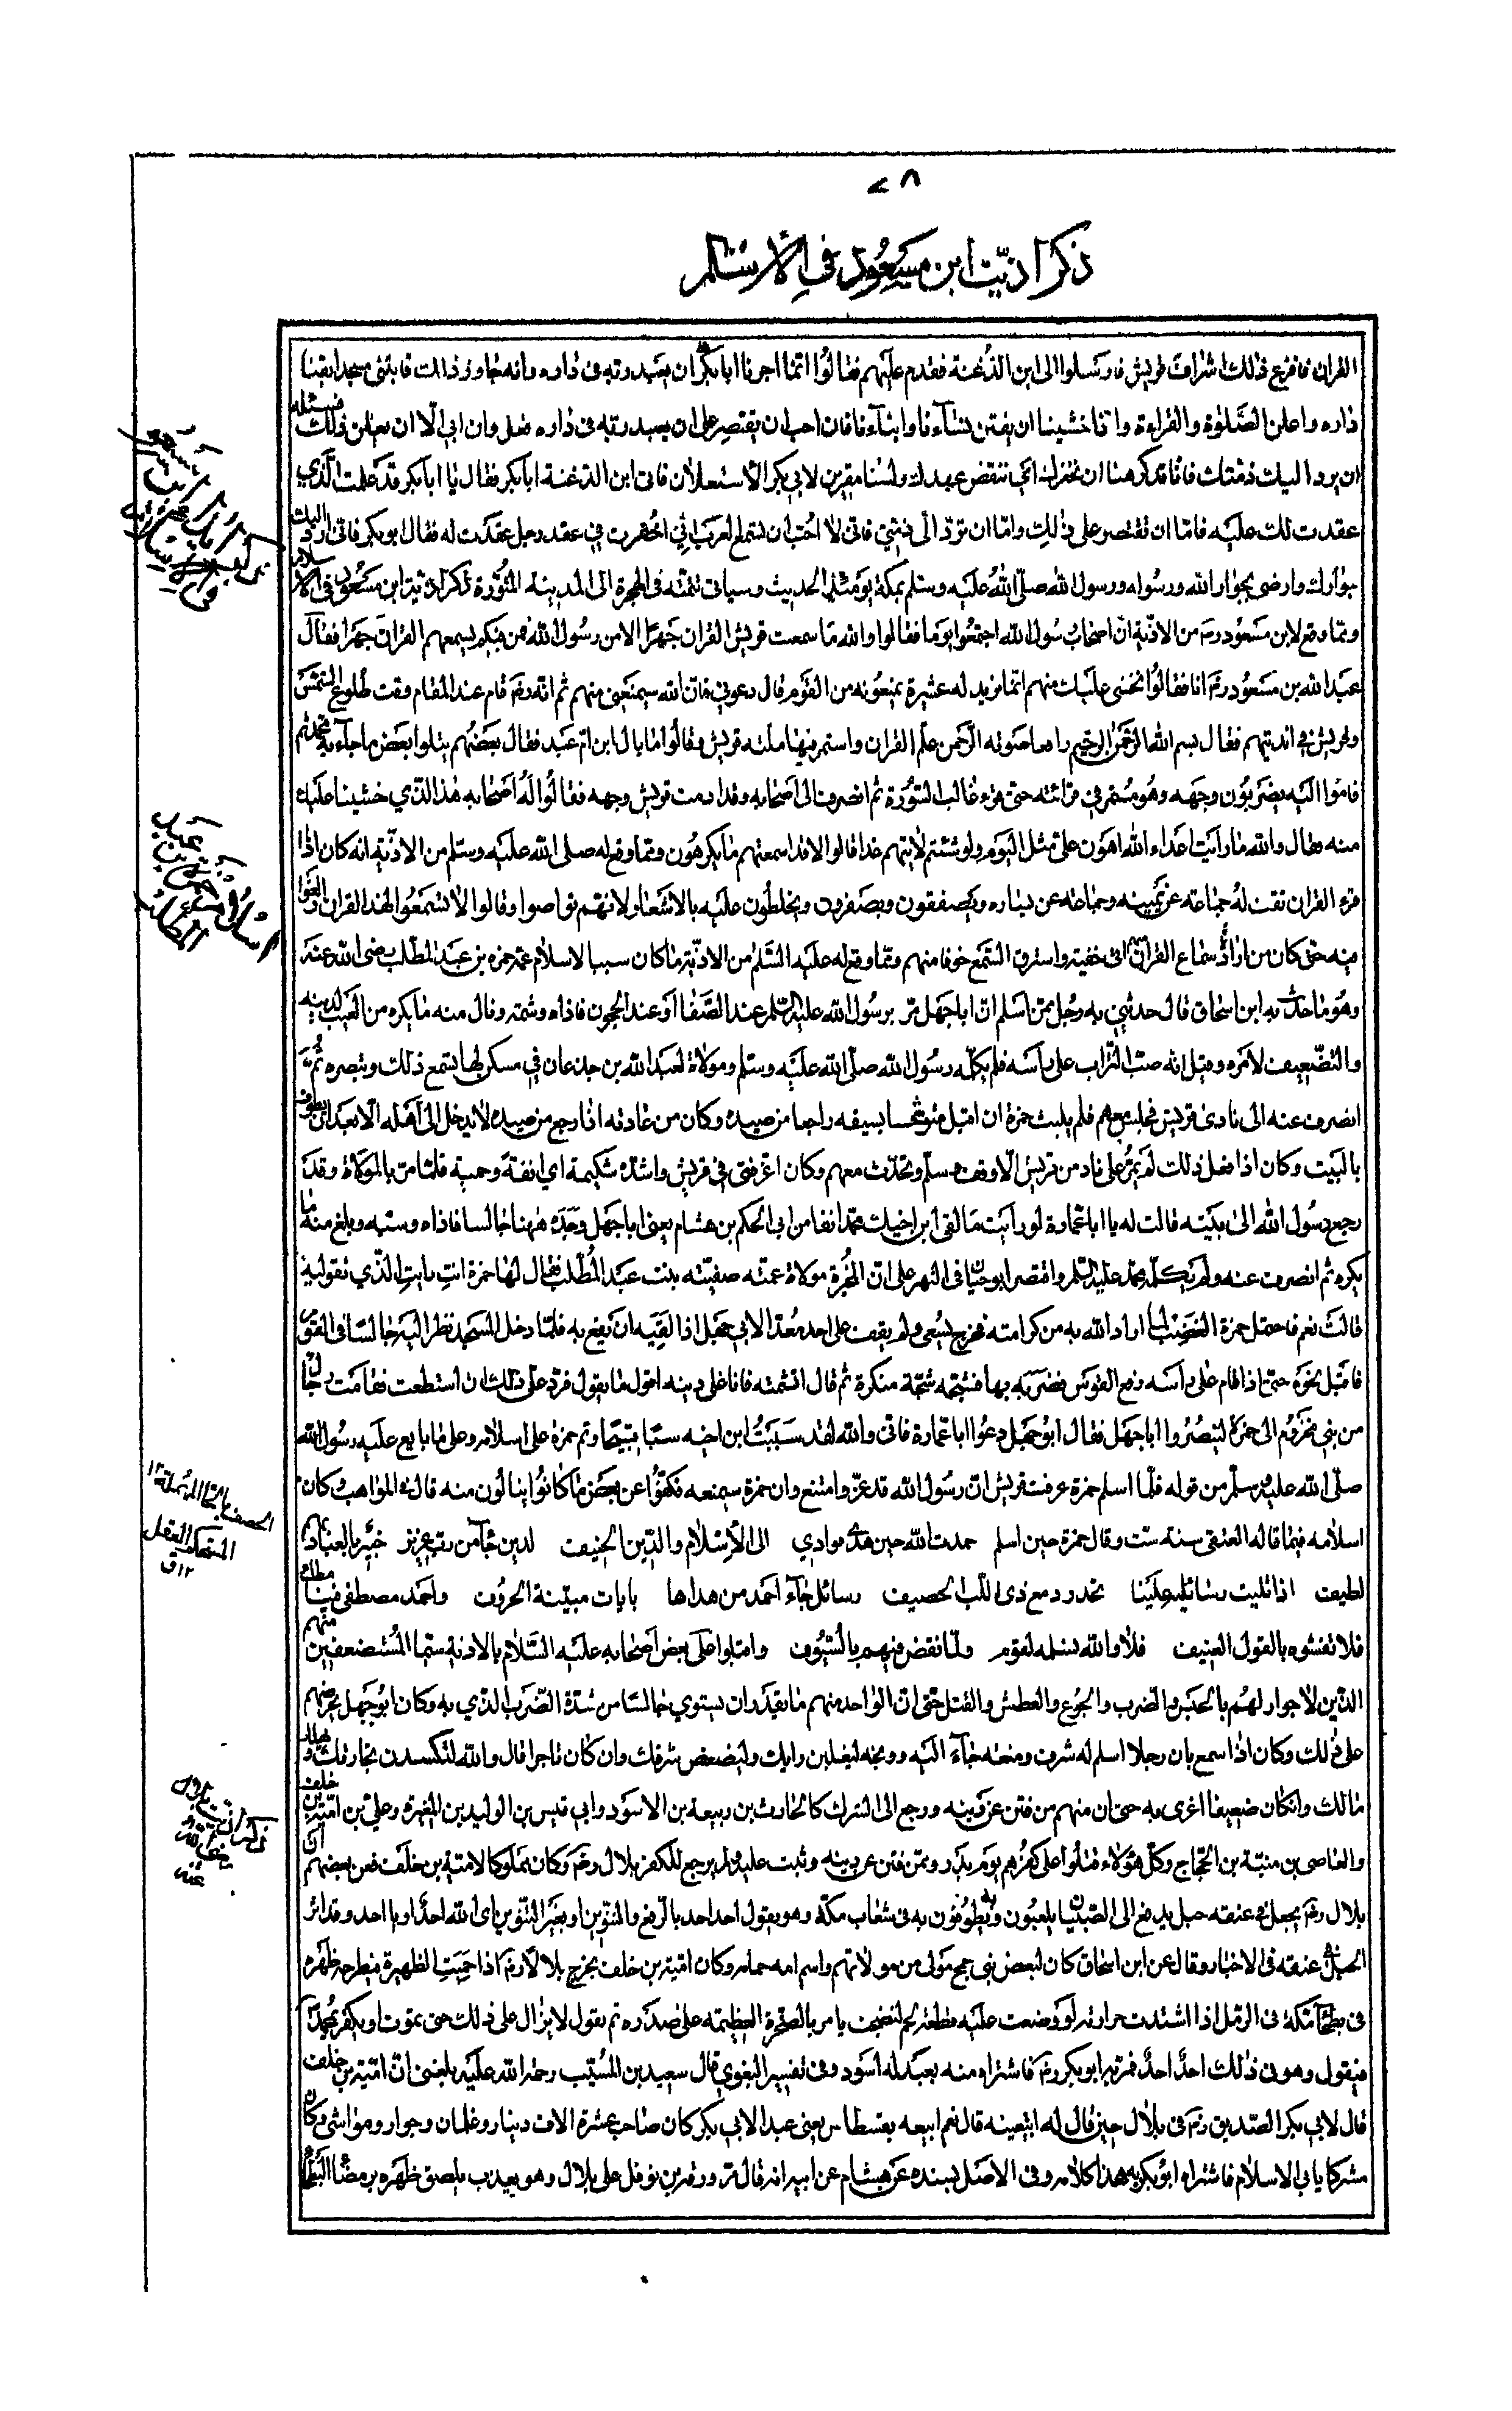 ٧٨
ذكر اذيت ابن مسعود في الاسلام
القران فافزع ذلك اشراف قريش فارسلوا الى ابن الدغنة فقدم عليهم فقالوا انما اجرنا ابابكر ان يعبد ربه فى داره وانه جاوز ذالك فابتنى مسجدا بفناء
داره واعلن الصلوة والقراءة وانا خشينا ان يفتن نساءنا وابناءنا فان احب ان يقتصر على ان يعبد ربه فى داره فعل وان ابى الا ان يعلن ذلك فسئله
ان يرد اليك ذمتك فانا قد كرهنا ان نخفرك اي ننقض عهدك ولسنا مقرين لابي بكر الاستعلان فاتى ابن الدغنة ابابكر فقال يا ابابكر قد علمت الذي
عقدت لك عليه فاما ان تقتصر على ذلك واما ان ترد الى ذمتي فانى لا احب ان تسمع العرب اني اخفرت في عقد رجل عقدت له فقال ابو بكر فانى ارد اليك
جوارك وارضى بجوار الله ورسوله ورسول الله صلى الله عليه وسلم بمكة يومئذ الحديث وسياتى تتمته فى الهجرة الى المدينة المنورة ذكر اذية ابن مسعود فى الاسلام
ومما وقع لابن مسعود رضه من الاذية ان اصحاب رسول الله اجتمعوا يوما فقالوا والله ما سمعت قريش القران جهرا الا من رسول الله فمن فيكم يسمعهم القران جهرا فقال
عبد الله بن مسعود رضه انا فقالوا نخشى عليك منهم انما نريد له عشيرة يمنعونه من القوم قال دعوني فان الله سيمنعنى منهم ثم انه رضه قام عند المقام وقت طلوع الشمس
وقريش في انديتهم فقال بسم الله الرحمن الرحيم رافعا صوته الرحمن علم القران واستمر فيها فتأملته قريش وقالوا ما بال ابن ام عبد فقال بعضهم يتلوا بعض ما جاء به محمد ثم
قاموا اليه يضربون وجهه وهو مستمر في قرائته حتى قرء غالب السورة ثم انصرف الى اصحابه وقد ادمت قريش وجهه فقالوا له اصحابه هذا الذي خشينا عليك
منه فقال والله ما رايت اعداء الله اهون علي مثل اليوم ولو شئتم لاتيتهم غدا قالوا لا قد اسمعتهم ما يكرهون ومما وقع له صلى الله عليه وسلم من الاذية انه كان اذا
قرء القران تقف له جماعة عن يمينه وجماعة عن يساره ويصفقون ويصفرون ويخلطون عليه بالاشعار لانهم تواصوا وقالوا لا تسمعوا لهذا القران والغوا
فيه حتى كان من اراد سماع القران اتى خفية واسترق السمع خوفا منهم ومما وقع له عليه السلام من الاذية ما كان سببا لاسلام عمه حمزه بن عبد المطلب رضى الله عنه
وهو ما حدث به ابن اسحاق قال حدثني به رجل ممن اسلم ان اباجهل مر برسول الله عليه السلم عند الصفا او عند الحجون فاذاه وشتمه ونال منه ما يكره من العيب لدينه
والتضعيف لامره وقيل انه صب التراب على رأسه فلم يكلمه رسول الله صلى الله عليه وسلم ومولاة لعبد الله بن جدعان في مسكن لها تسمع ذلك وتبصره ثم
انصرف عنه الى نادى قريش فجلس معهم فلم يلبث حمزة ان اقبل متوشحا بسيفه راجعا من صيده وكان من عادته اذا رجع من صيده لا يدخل الى اهله الا بعد ان يطوف
بالبيت وكان اذا فعل ذلك لم يمر على ناد من قريش الا وقف وسلم وتحدث معهم وكان اعز فتى في قريش واشده شكيمة اي انفة وحمية فلما مر بالمولاة وقد
رجع رسول الله الى بيته قالت له يا ابا عمارة لو رأيت ما لقى ابن اخيك محمد انفا من ابى الحكم بن هشام يعنى اباجهل وجده ههنا جالسا فاذاه وسبه وبلغ منه ما
يكره ثم انصرف عنه ولم يكلمه محمد عليه السلم واقتصر ابو حيان فى النهر على ان المخبرة مولاة عمته صفية بنت عبد المطلب فقال لها حمزة انت رايت الذي تقولين
قالت نعم فاحتمل حمزة الغضب لما اراد الله به من كرامته فخرج يسعى ولم يقف على احد معدا لابي جهل اذا لقيه ان يقع به فلما دخل المسجد نظر اليه جالسا فى القوم
فاقبل نحوه حتى اذا قام على رأسه رفع القوس فضربه بها فشجه شجة منكرة ثم قال اتشتمه فانا على دينه اقول ما يقول فرد علي ذلك ان استطعت فقامت رجال
من بني مخزوم الى حمزة لينصروا اباجهل فقال ابو جهل دعوا ابا عمارة فانى والله لقد سببت ابن اخيه سبا قبيحا وتم حمزة على اسلامه وعلى ما بايع عليه رسول الله
صلى الله عليه وسلم من قوله فلما اسلم حمزة عرفت قريش ان رسول الله قد عز وامتنع وان حمزة سيمنعه فكفوا عن بعض ما كانوا ينالون منه قال فى المواهب وكان
اسلامه فيما قاله العتقى سنة ست وقال حمزة حين اسلم حمدت الله حين هدى فؤادي الى الاسلام والدين الحنيف لدين جاء من رب عزيز خبير بالعباد بهم
لطيف اذا تليت رسائله علينا تحدر دمع ذى اللب الحصيف رسائل جاء احمد من هداها بايات مبينة الحروف واحمد مصطفى فينا مطاع
فلا تغشوه بالقول العنيف فلا والله نسلمه لقوم ولما نقض فيهم بالسيوف وابتلوا على بعض اصحابه عليه السلام بالاذية سيما المستضعفين منهم
الذين لا جوار لهم بالحبس والضرب والجوع والعطش والقتل حتى ان الواحد منهم ما يقدر ان يستوي جالسا من شدة الضرب الذي به وكان ابو جهل يحرضهم
على ذلك وكان اذا سمع بان رجلا اسلم له شرف ومنعة جاء اليه ووبخه ليغلبن رايك وليضعفن شرفك وان كان تاجرا قال والله لتكسدن تجارتك ويهلك
مالك وان كان ضعيفا اغرى به حتى ان منهم من فتن عن دينه ورجع الى الشرك كالحارث بن ربيعة بن الاسود وابى قيس بن الوليد بن المغيرة وعلي بن امية بن خلف
والعاصى بن منبة بن الحجاج وكل هؤلاء قتلوا على كفرهم يوم بدر وممن فتن عن دينه وثبت عليه ولم يرجع للكفر بلال رضه وكان مملوكا لامية بن خلف فعن بعضهم ان
بلال رضه يجعل فى عنقه حبل يدفع الى الصبيان يلعبون به ويطوفون به فى شعاب مكة وهو يقول احد احد بالرفع والتنوين او بغير التنوين اى الله احد او يا احد وقد اثر
الحبل فى عنقه فى الاخبار وقال عن ابن اسحاق كان لبعض بنى جمح مولى من مولاتهم واسم امه حمامه وكان امية بن خلف يخرج بلالا رضه اذا حميت الظهيرة فيطرحه ظهره
فى بطحا مكة فى الرمل اذا اشتدت حرارته لو وضعت عليه قطعة لحم لنضجت يامر بالصخرة العظيمة على صدره ثم يقول لا يزال على ذلك حتى يموت او يكفر بمحمد
فيقول وهو فى ذلك احد احد فمر به ابو بكر رضه فاشتراه منه بعبد له اسود وفى تفسير البغوي قال سعيد بن المسيب رحمة الله عليه بلغنى ان امية بن خلف
قال لابي بكر الصديق رضه فى بلال حين قال له اتبيعينه قال نعم ابيعه بقسطاس يعنى عبد الابى بكر كان صاحب عشرة الاف دينار وغلمان وجوار ومواشى وكان
مشركا يابى الاسلام فاشتراه ابو بكر به هذا كلامه وفى الاصل بسنده عن هشام عن ابيه انه قال مر ورقه بن نوفل على بلال وهو يعذب يلصق ظهره برمضاء البطحا
ذكر اول اذيت
فى الاسلام
اسلام
عبد المطلب
الحصف بالحاء المهملة ١٢
استحكام العقل
١٢ ق
ذكر اذيت بلال
رضى الله
عنه